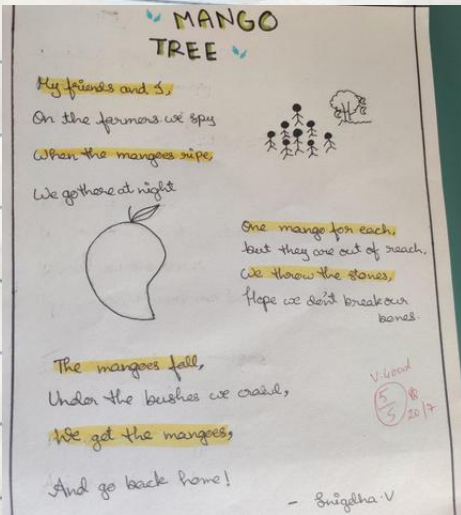 MANGO
TREE
My friends and I,
On the farmers we spy
When the mangoes ripe,
We go there at night
One mango for each,
but they are out of reach.
We throw the stones,
Hope we don't break our
bones.
The mangoes fall,
Under the bushes we crawl,
We get the mangoes,
And go back home!
V. Good
5/5
20/7
- Snigdha.V